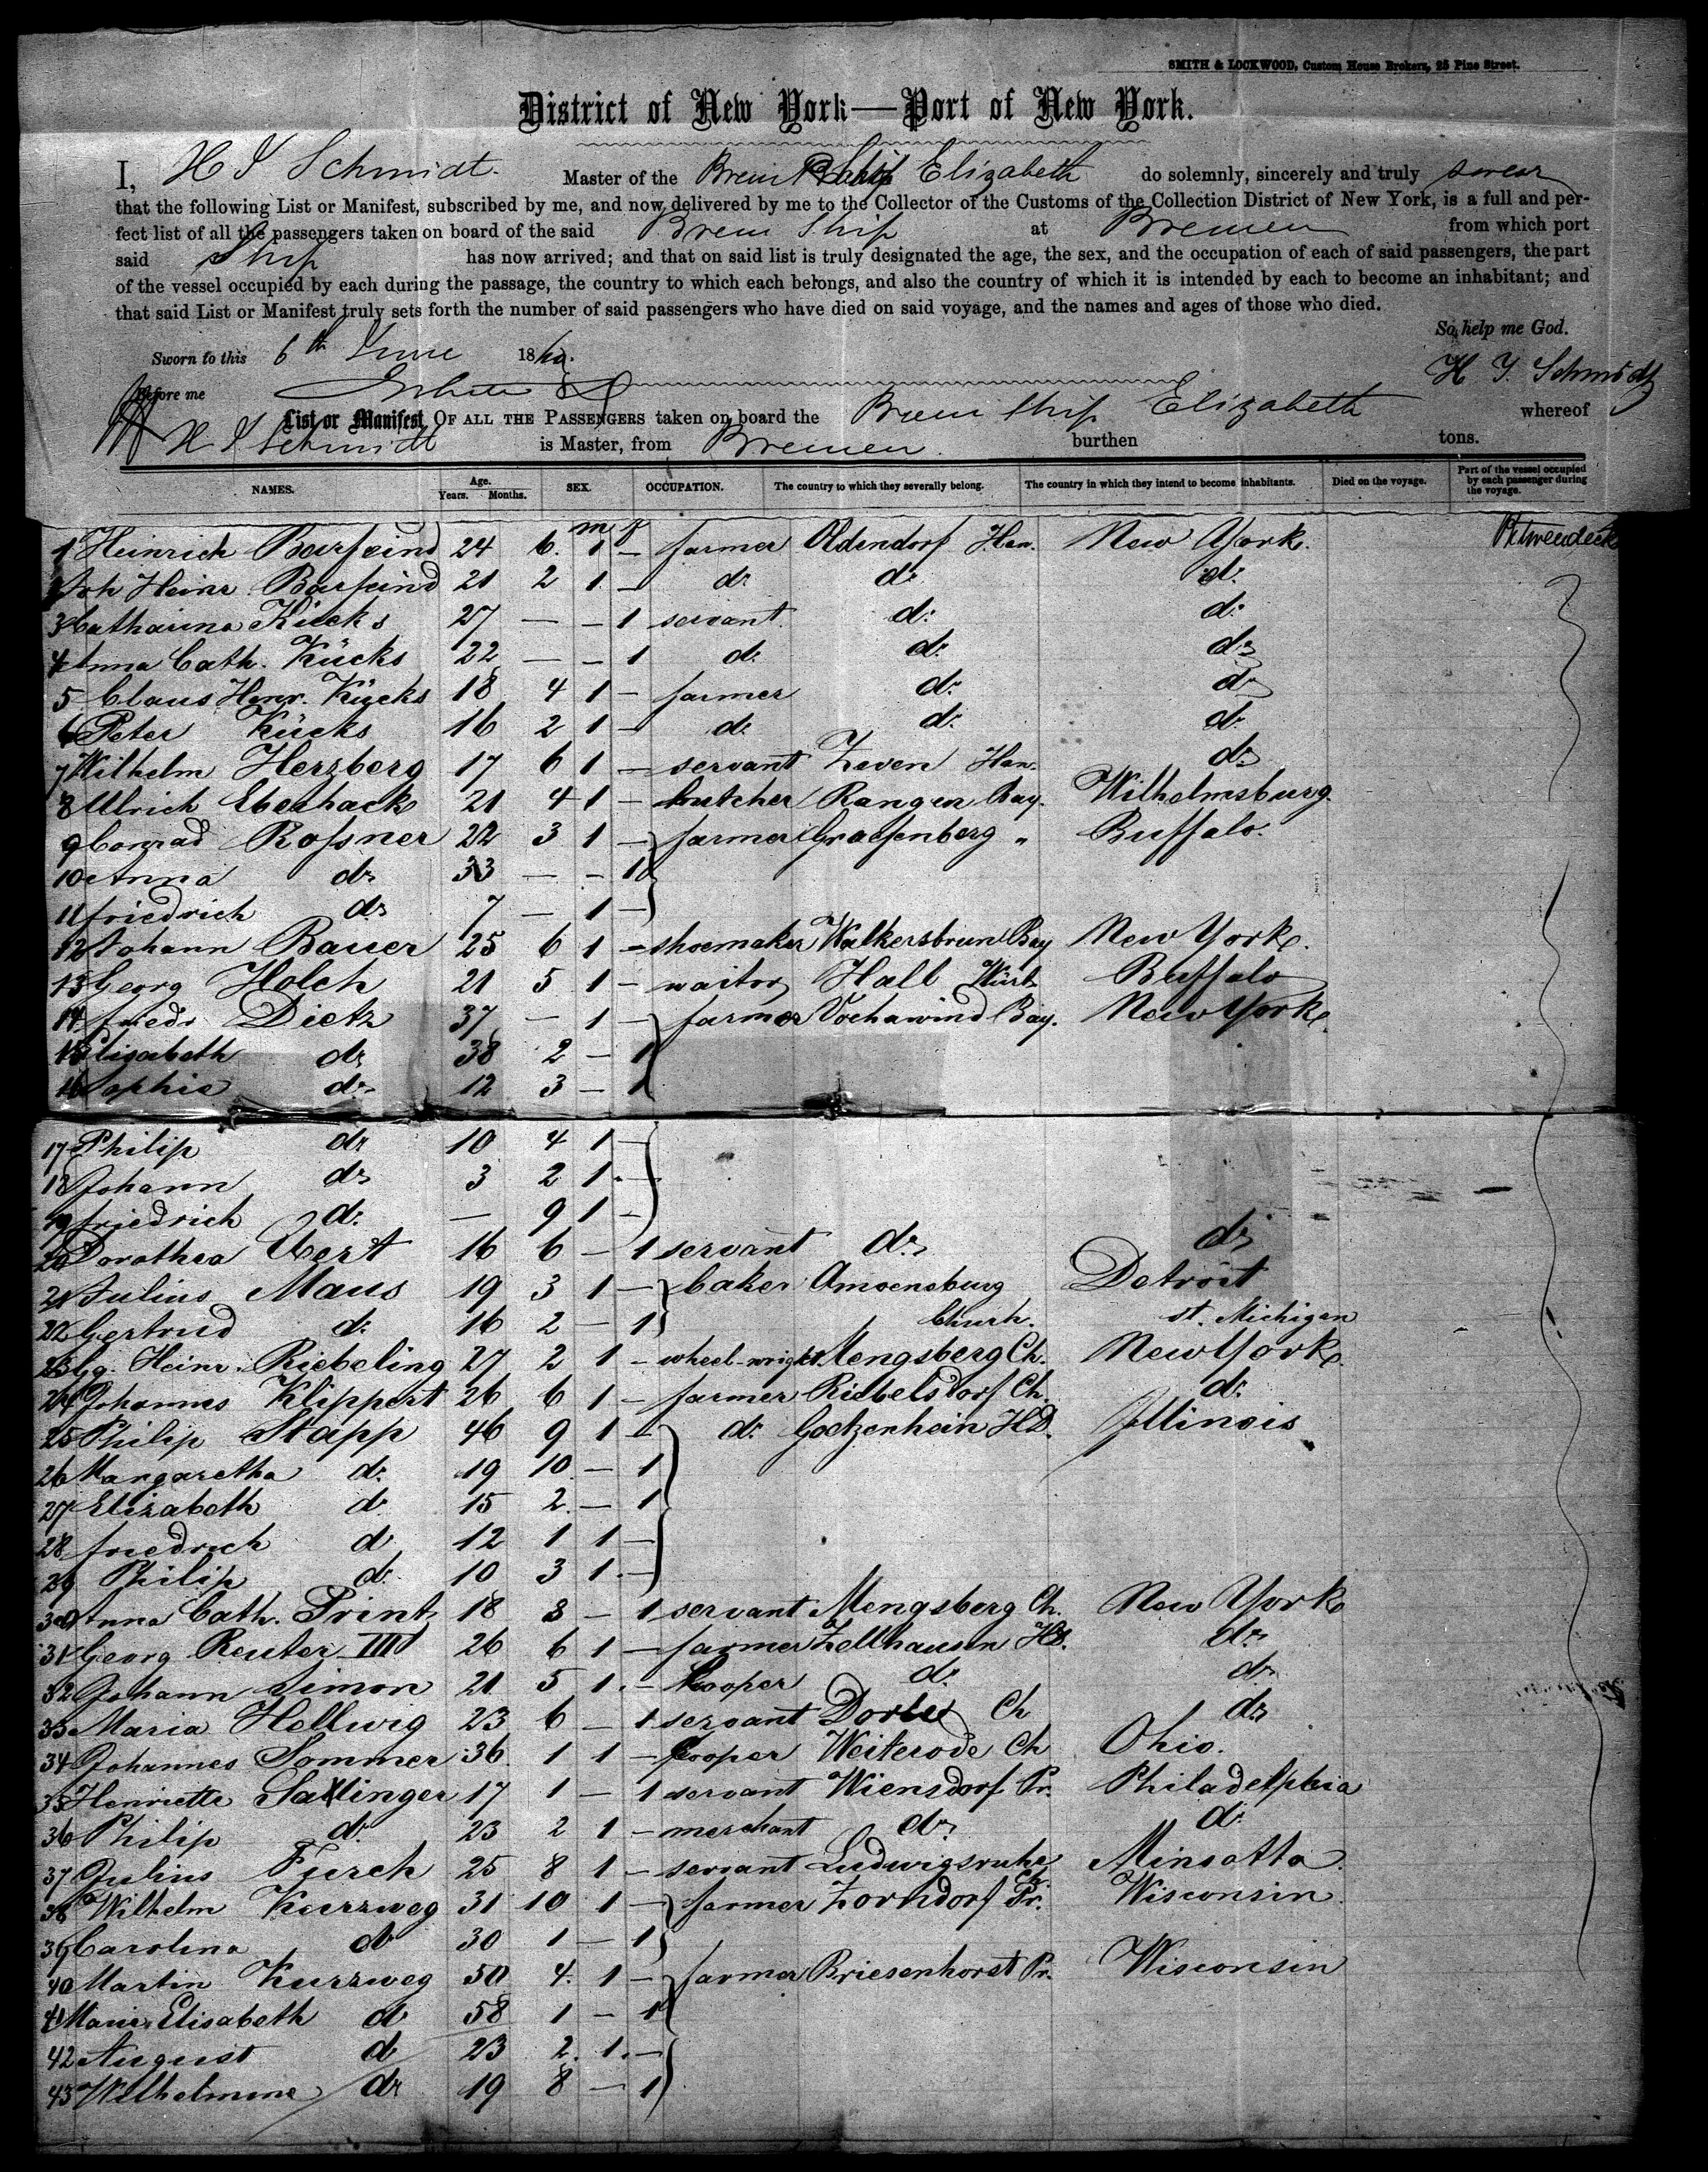 SMITH & LOCKWOOD, Custom House Brokers, 25 Pine Street.
District of New York—Port of New York.
I, H I Schmidt. Master of the Brem Ship Elizabeth do solemnly, sincerely and truly swear
that the following List or Manifest, subscribed by me, and now delivered by me to the Collector of the Customs of the Collection District of New York, is a full and per-
fect list of all the passengers taken on board of the said Brem Ship at Bremen from which port
said Ship has now arrived; and that on said list is truly designated the age, the sex, and the occupation of each of said passengers, the part
of the vessel occupied by each during the passage, the country to which each belongs, and also the country of which it is intended by each to become an inhabitant; and
that said List or Manifest truly sets forth the number of said passengers who have died on said voyage, and the names and ages of those who died.
So help me God.
Sworn to this 6th June 186
H I Schmidt
Before me
List or Manifest OF ALL THE PASSENGERS taken on board the Brem Ship Elizabeth whereof
H I Schmidt is Master, from Bremen. burthen tons.
NAMES. Age. Years. Months. SEX. OCCUPATION. The country to which they severally belong. The country in which they intend to become inhabitants. Died on the voyage. Part of the vessel occupied by each passenger during the voyage.
m f
1 Heinrich Barfeind 24 6. 1 — farmer Oldendorf Han. New York. Betweendeck
2 Joh Heinr. Barfeind 21 2 1 — do do do
3 Catharina Kücks 27 — — 1 servant do do
4 Anna Cath. Kücks 22 — — 1 do do do
5 Claus Henr. Kücks 18 4 1 — farmer do do
6 Peter Kücks 16 2 1 — do do do
7 Wilhelm Herzberg 17 6 1 — servant Zeven Han. do
8 Ulrich Eberhack 21 4 1 — butcher Rangen Bay. Wilhelmsburg.
9 Conrad Roſsner 22 3 1 — farmer Graefenberg " Buffalo.
10 Anna do 33 — — 1
11 Friedrich do 7 — 1 —
12 Johann Bauer 25 6 1 — shoemaker Walkersbrun Bay New York.
13 Georg Holch 21 5 1 — waitor Hall Würt Buffalo
14 Friedr Dietz 37 — 1 — farmer Vochawind Bay. New York.
15 Elisabeth do 38 2 — 1
16 Sophie do 12 3 — 1
17 Philip do 10 4 1 —
18 Johann do 3 2 1. —
19 Friedrich do — 9 1 —
20 Dorothea 16 6 — 1 servant do do
21 Julius Maus 19 3 1 — baker Amoeneburg Detroit
22 Gertrud do 16 2 — 1 Churh. st. Michigan
23 Gg. Heinr. Riebeling 27 2 1 — wheel-wright Mengsberg Ch. New York.
24 Johannes Klippert 26 6 1 — farmer Riebelsdorf Ch. do
25 Philip Stapp 46 9 1 — do Goetzenhein H.D. Illinois
26 Margaretha do 19 10 — 1
27 Elizabeth do 15 2 — 1
28 Friedrich do 12 1 1 —
29 Philip do 10 3 1. —
30 Anna Cath. Print 18 3 — 1 servant Mengsberg Ch. New York
31 Georg Reuter IIId 26 6 1 — farmer Zellhausen HD. do
32 Johann Simon 21 5 1. — Cooper do do
33 Maria Hellwig 23 6 — 1 servant Dorle Ch do
34 Johannes Sommer 36. 1 1 — Cooper Weiterode Ch Ohio.
35 Henriette Sallinger 17 1 — 1 servant Wiensdorf Pr. Philadelphia
36 Philip do 23 2 1 — merchant do do
37 Julius Furch 25 8 1 — servant Ludwigsruhe Minsotta.
38 Wilhelm Kurzweg 31 10 1 — farmer Zorndorf Pr. Wisconsin.
39 Carolina do 30 1 — 1
40 Martin Kurzweg 50 4. 1 — farmer Briesenhorst Pr. Wisconsin
41 Marie Elisabeth do 58 1 — 1
42 August do 23 2. 1. —
43 Wilhelmine do 19 8 — 1